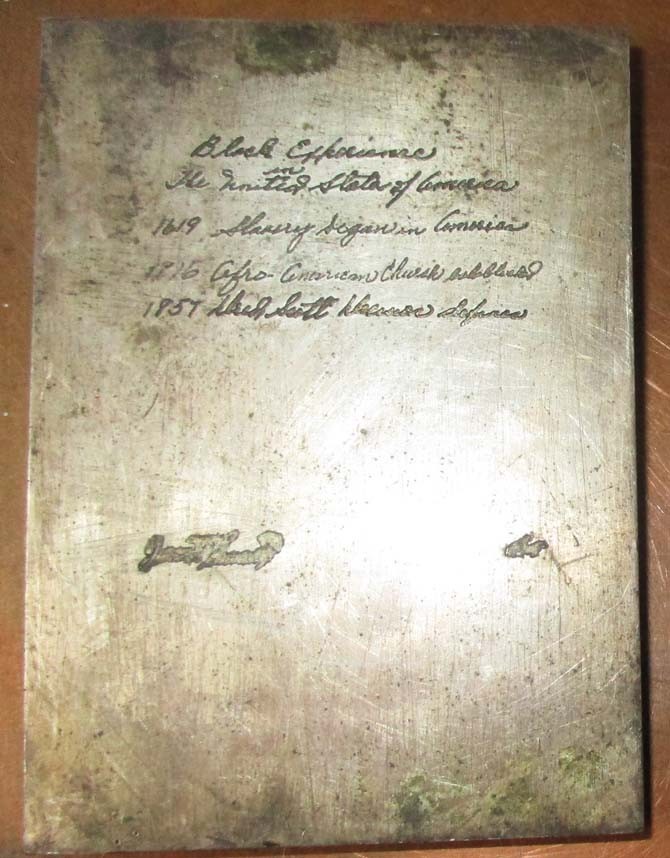 Black Experience
in
The United States of America
1619 Slavery began in America
1816 Afro-American Church established
1857 Dred Scott